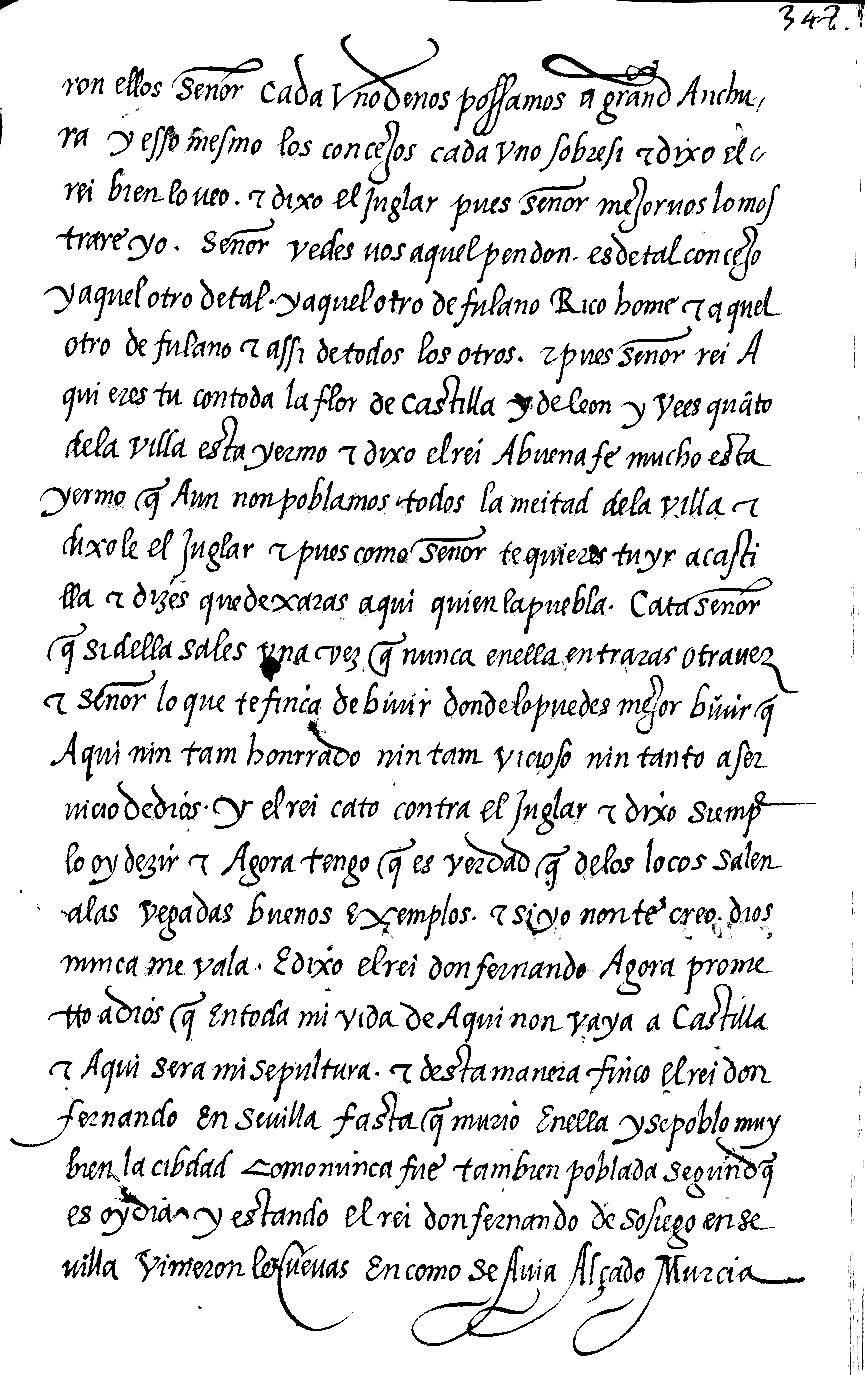 348.
ron ellos Señor Cada Vno de nos possamos a grand Anchu,
ra y esso mesmo los concejos cada vno sobre si & dixo el
rei bien lo veo. & dixo el Juglar pues Señor mejor vos lo mos
trare yo. Señor vedes vos aquel pendon. es de tal concejo
y aquel otro de tal. y aquel otro de fulano Rico home & aquel
otro de fulano & assi de todos los otros. & pues Señor rei A
qui eres tu con toda la flor de Castilla y de leon y Vees quāto
de la villa esta yermo & dixo el rei A buena fe mucho esta
yermo q̃ Aun non poblamos todos la meitad de la villa &
dixole el Juglar & pues como Señor te quieres tu yr a casti
lla & dizes que dexaras aqui quien la puebla. Cata Señor
q̃ si della sales vna vez q̃ nunca en ella entraras otra vez
& Señor lo que te finca de biuir donde lo puedes mejor biuir q̃
Aqui nin tam honrrado nin tam vicioso nin tanto a ser
uicio de dios. Y el rei cato contra el Juglar & dixo siemp̃
lo oy dezir & Agora tengo q̃ es verdad q̃ de los locos salen
a las vegadas buenos Exemplos. & si yo non te creo. dios
nunca me vala. E dixo el rei don fernando Agora prome
tto a dios q̃ En toda mi vida de Aqui non vaya a Castilla
& Aqui sera mi sepultura. & desta manera finco el rei don
fernando En Sevilla fasta q̃ murio En ella y se poblo muy
bien la cibdad como nunca fue tambien poblada segund q̃
es oy dia y estando el rei don fernando de sosiego en se
uilla Vinieron le nuevas En como se Auia Alçado Murcia